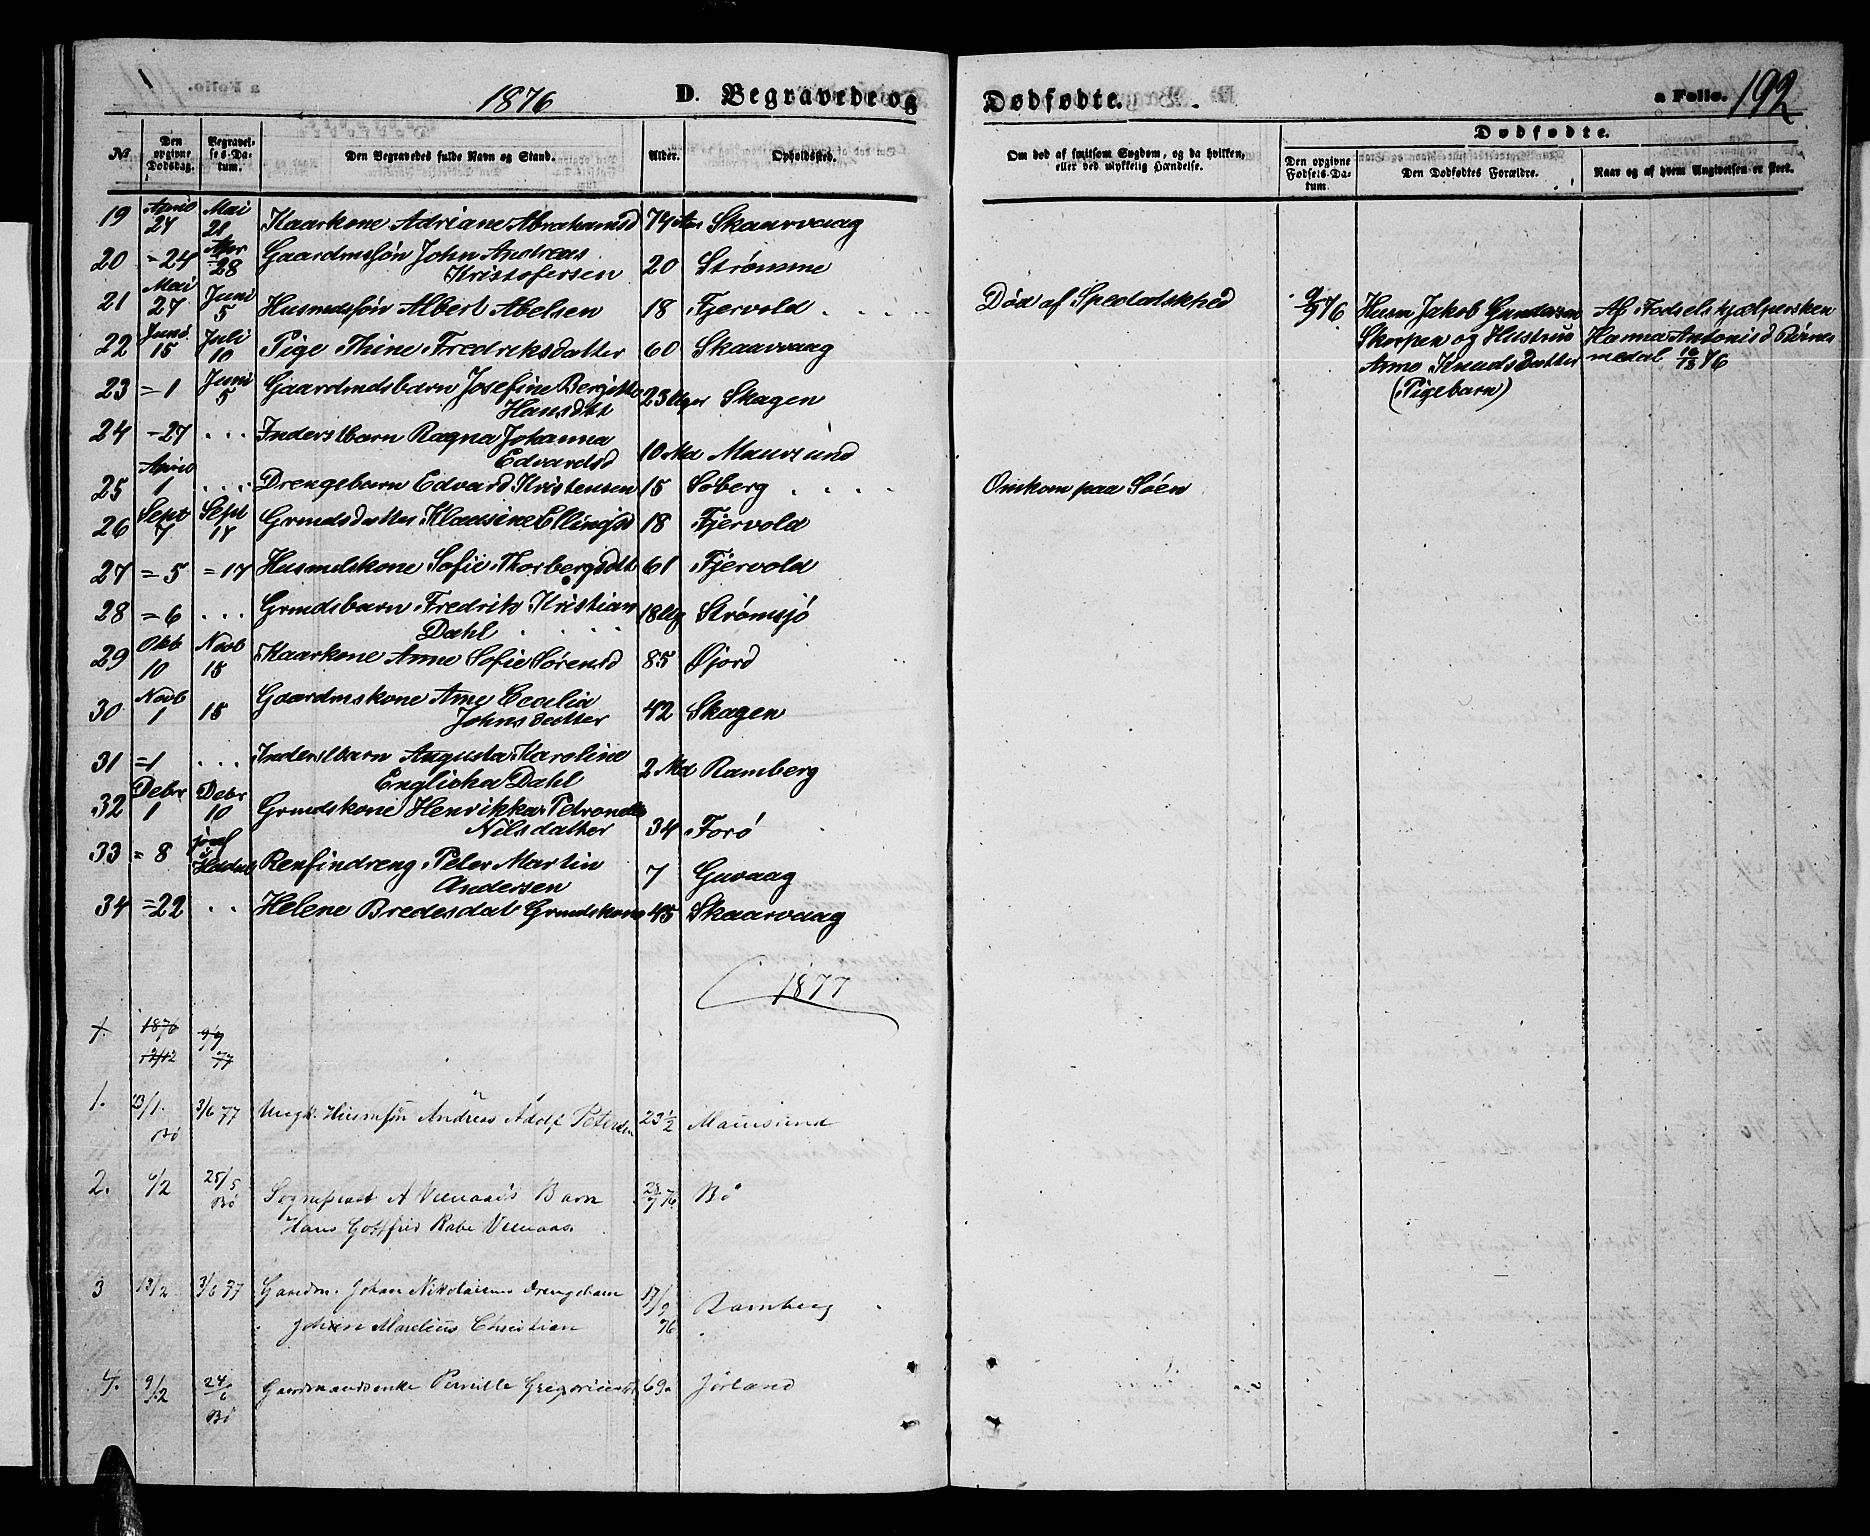 1876 D. Begravede og Dødfødte. a Folio. 192
№ Den opgivne Dødsdag. Begravelses-Datum. Den Begravedes fulde Navn og Stand. Alder. Opholdssted. Om død af smitsom Sygdom, og da hvilken, eller ved ulykkelig Hændelse. Dødfødte.
Den opgivne Fødsels-Datum. Den Dødfødtes Forældre. Naar og af hvem Angivelsen er skeet.
19 April 24 Mai 21 Kaarkone Adriane Abrahamsd 74 Aar Skaarvaag
20 =24 Apr 28 Gaardmsføn John Andreas
Kristofersen 20 Strømme
21 Mai 27 Juni 5 Husmdsføn Albert Abelsen 18 Fjervold . . . . Død af Spedalskhed
22 Juni 15 Juli 10 Pige Thine Fredriksdatter 60 Skaarvaag
/76 Husm Jakob
Skorpen og Hustru
Anne Knudsdatter
(Pigebarn)
Af Fødselshjælpersken
Hanna Antonisd
76
23 =1 Juni 5 Gaardmdsbarn Josefine Bergitte
Hansdtt 23 Uger Skagen
24 =27 . . . Inderstbarn Ragna Johanna
Edvardsd 10 Md Maursund
25 April 1 . . . Drengebarn Edvard Kristensen 15 Søberg . . . . Omkom paa Søen
26 Sept 7 Sept 17 Grmdsdatter Klausine Ellingsd 18 Fjervold
27 =5 =17 Husmdskone Sofie Thorbergsdtt 61 Fjervold
28 =6 . . . Grmdsbarn Fredrik Kristian
Dahl . . . . 18 Ug Strømsjø
29 Okb 10 Novb 18 Kaarkone Anne Sofie Sørensd 85 Øjord
30 Novb 1 18 Gaardmskone Ane Cecilia
Johnsdatter 42 Skagen
31 =1 . . . Inderstbarn Augusta Karoline
Englicka Dahl 2 Md Ramberg
32 Debr 1 Debr 10 Grmdskone Henrikka Petronelle
Nilsdatter 34 Forø
33 =8 Hadsel Peter Martin
Andersen 7 Guvaag
34 =22 . . Helene Bredesdat Grmdskone 45 Skaarvaag
1877
1. 1876 12/12 9/9 77
1. 13/1. Bø 3/6 77 Ungk. Husmføn Andreas Adolf Petersen 23 1/2 Maursund
2. 6/2 25/5 Bø Sognepræst A Barn
Hans Gottfried Rabe 76 Bø
3 13/2 3/6 77 Gaardm. Johan Nikolaisens Drengebarn
Johan Marelius Christian 17/9 76 Ramberg
4. 9/2 24/6 Bø Gaardmandsenke Pernille 69. Jørland